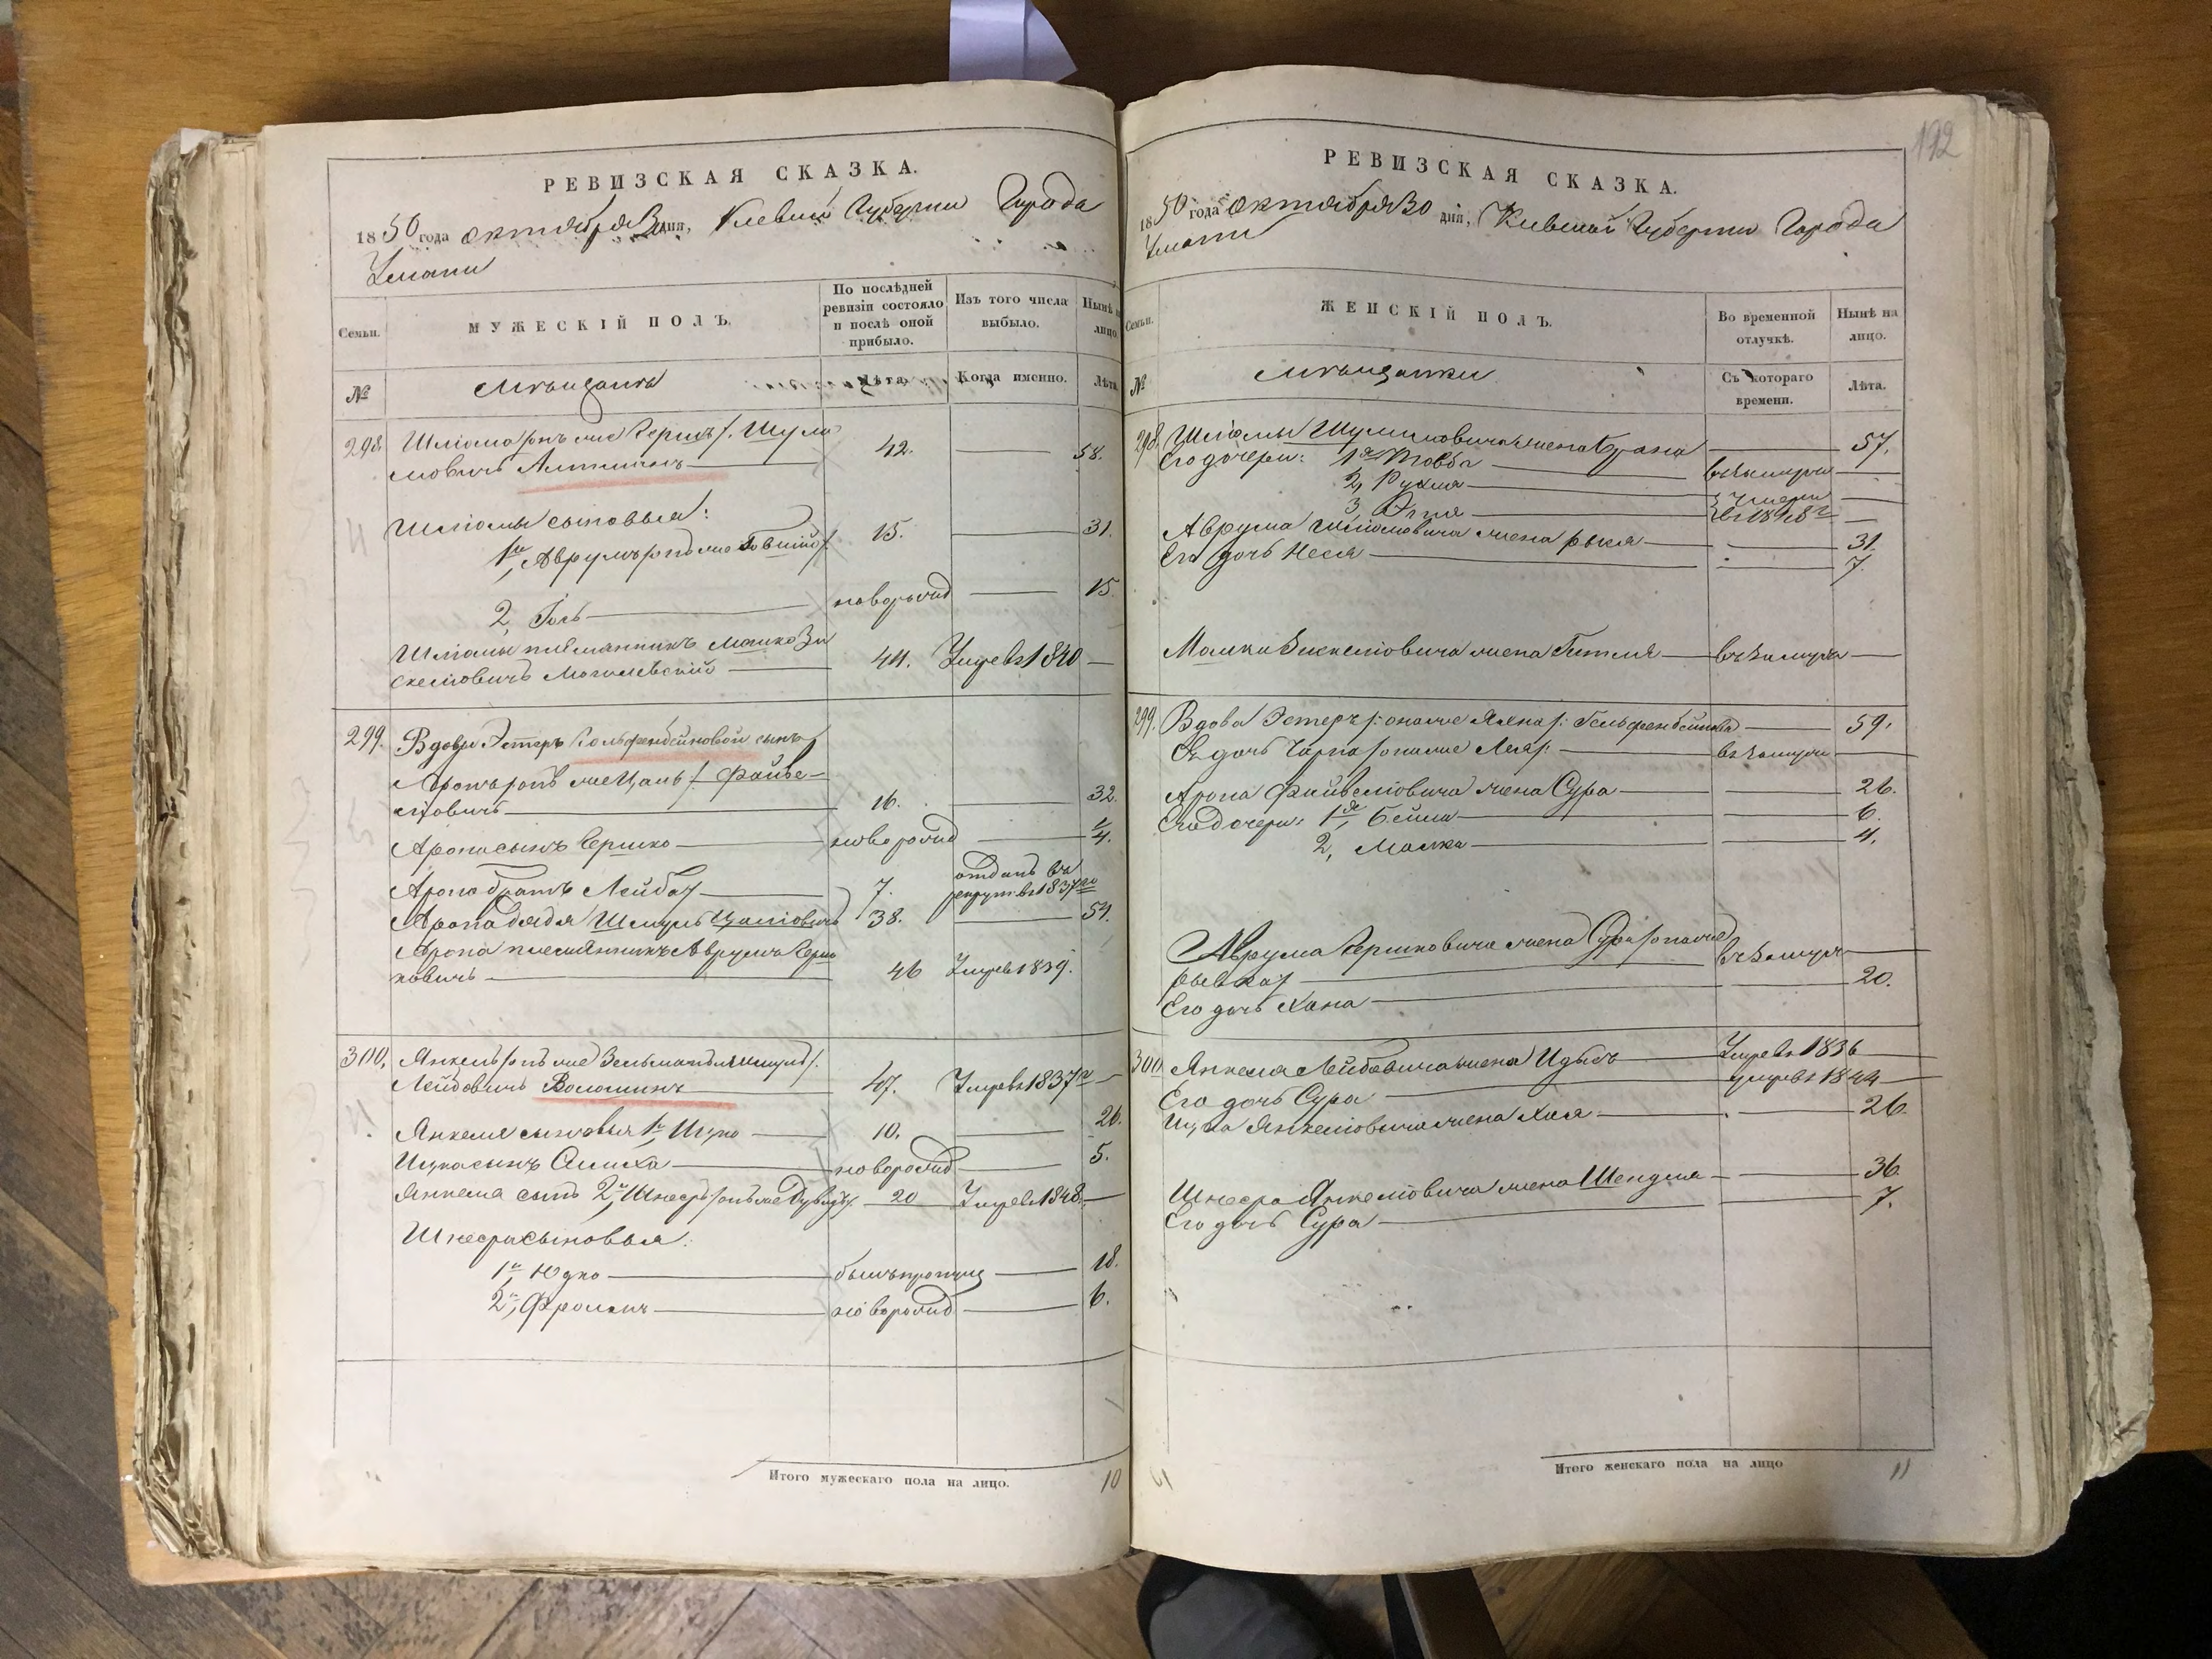 РЕВИЗСКАЯ СКАЗКА.
1850 года октября 30 дня, Киевской Губернии Города
Умани
Семьи.
МУЖЕСКІЙ ПОЛЪ.
По послѣдней ревизіи состояло и послѣ оной прибыло.
Изъ того числа выбыло.
Нынѣ на лицо.
№
Мѣщанъ
Лѣта.
Когда именно.
Лѣта.
298. Шліома /онъ же Гершъ/ Шули
мовичъ Альтманъ 42. 58.
Шліомы сыновья:
1й, Аврумъ /онъ же 15. 31.
2, новорожд 15
Шліомы племянникъ Мошко Зи
скеліовичъ Могилевскій 44. Умре въ 1840
299. Вдовы Эстеръ Гольфенбейновой сынъ
Аронъ /онъ же /. Файве-
ліовичъ 16. 32.
Арона сынъ Гершко новорожд 1/4.
Арона братъ Лейба 7. отданъ въ
рекрут въ 1837 го
Арона дядя Шмуль 38. 54.
Арона племянникъ Аврумъ Герш
ковичъ 46 Умре въ 1839.
300. Янкель /онъ же
Лейбовичъ Волошинъ 47. Умре въ 1837 го
Янкеля сыновья 1й, Ицко 10. 26.
Ицка сынъ Симха новорожд 5.
Янкеля сынъ 2й, Шнееръ /онъ же 20 Умре въ 1848.
Шнеера сыновья:
1й, Юдко былъ пропущ 18.
2й, Фроимъ новорожд 6.
Итого мужескаго пола на лицо. 10
192
РЕВИЗСКАЯ СКАЗКА.
1850 года октября 30 дня, Киевской Губернии Города
Умани
Семьи.
ЖЕНСКІЙ ПОЛЪ.
Во временной отлучкѣ.
Нынѣ на лицо.
№
Мѣщанки
Съ котораго времени.
Лѣта.
298. Шліомы Шулимовича жена 57.
Его дочери: 1я Товба въ замуж
2, Рухля } Умерли
3, } въ 1848 г
Аврума Шліомовича жена Рыся 31.
Его дочь Неся 7.
Мошки Зискеліовича жена Гитля въ замуж
299. Вдова Эстеръ /: она же /: Гельфенбейнова 59.
Ея дочь Чарна /она же Лея/: въ замуж
Арона Файвеліовича жена Сура 26.
Его дочери: 1я, Бейла 6.
2, Малка 4.
Аврума Гершковича жена Сура /она же
Рывка/ въ замуж
Его дочь Хана 20.
300. Янкеля Лейбовича жена Идысъ Умре въ 1836
Его дочь Сура умре въ 1844
Ицка Янкеліовича жена Хая 26.
Шнеера Янкеліовича жена Шендля 36.
Его дочь Сура 7.
Итого женскаго пола на лицо 11